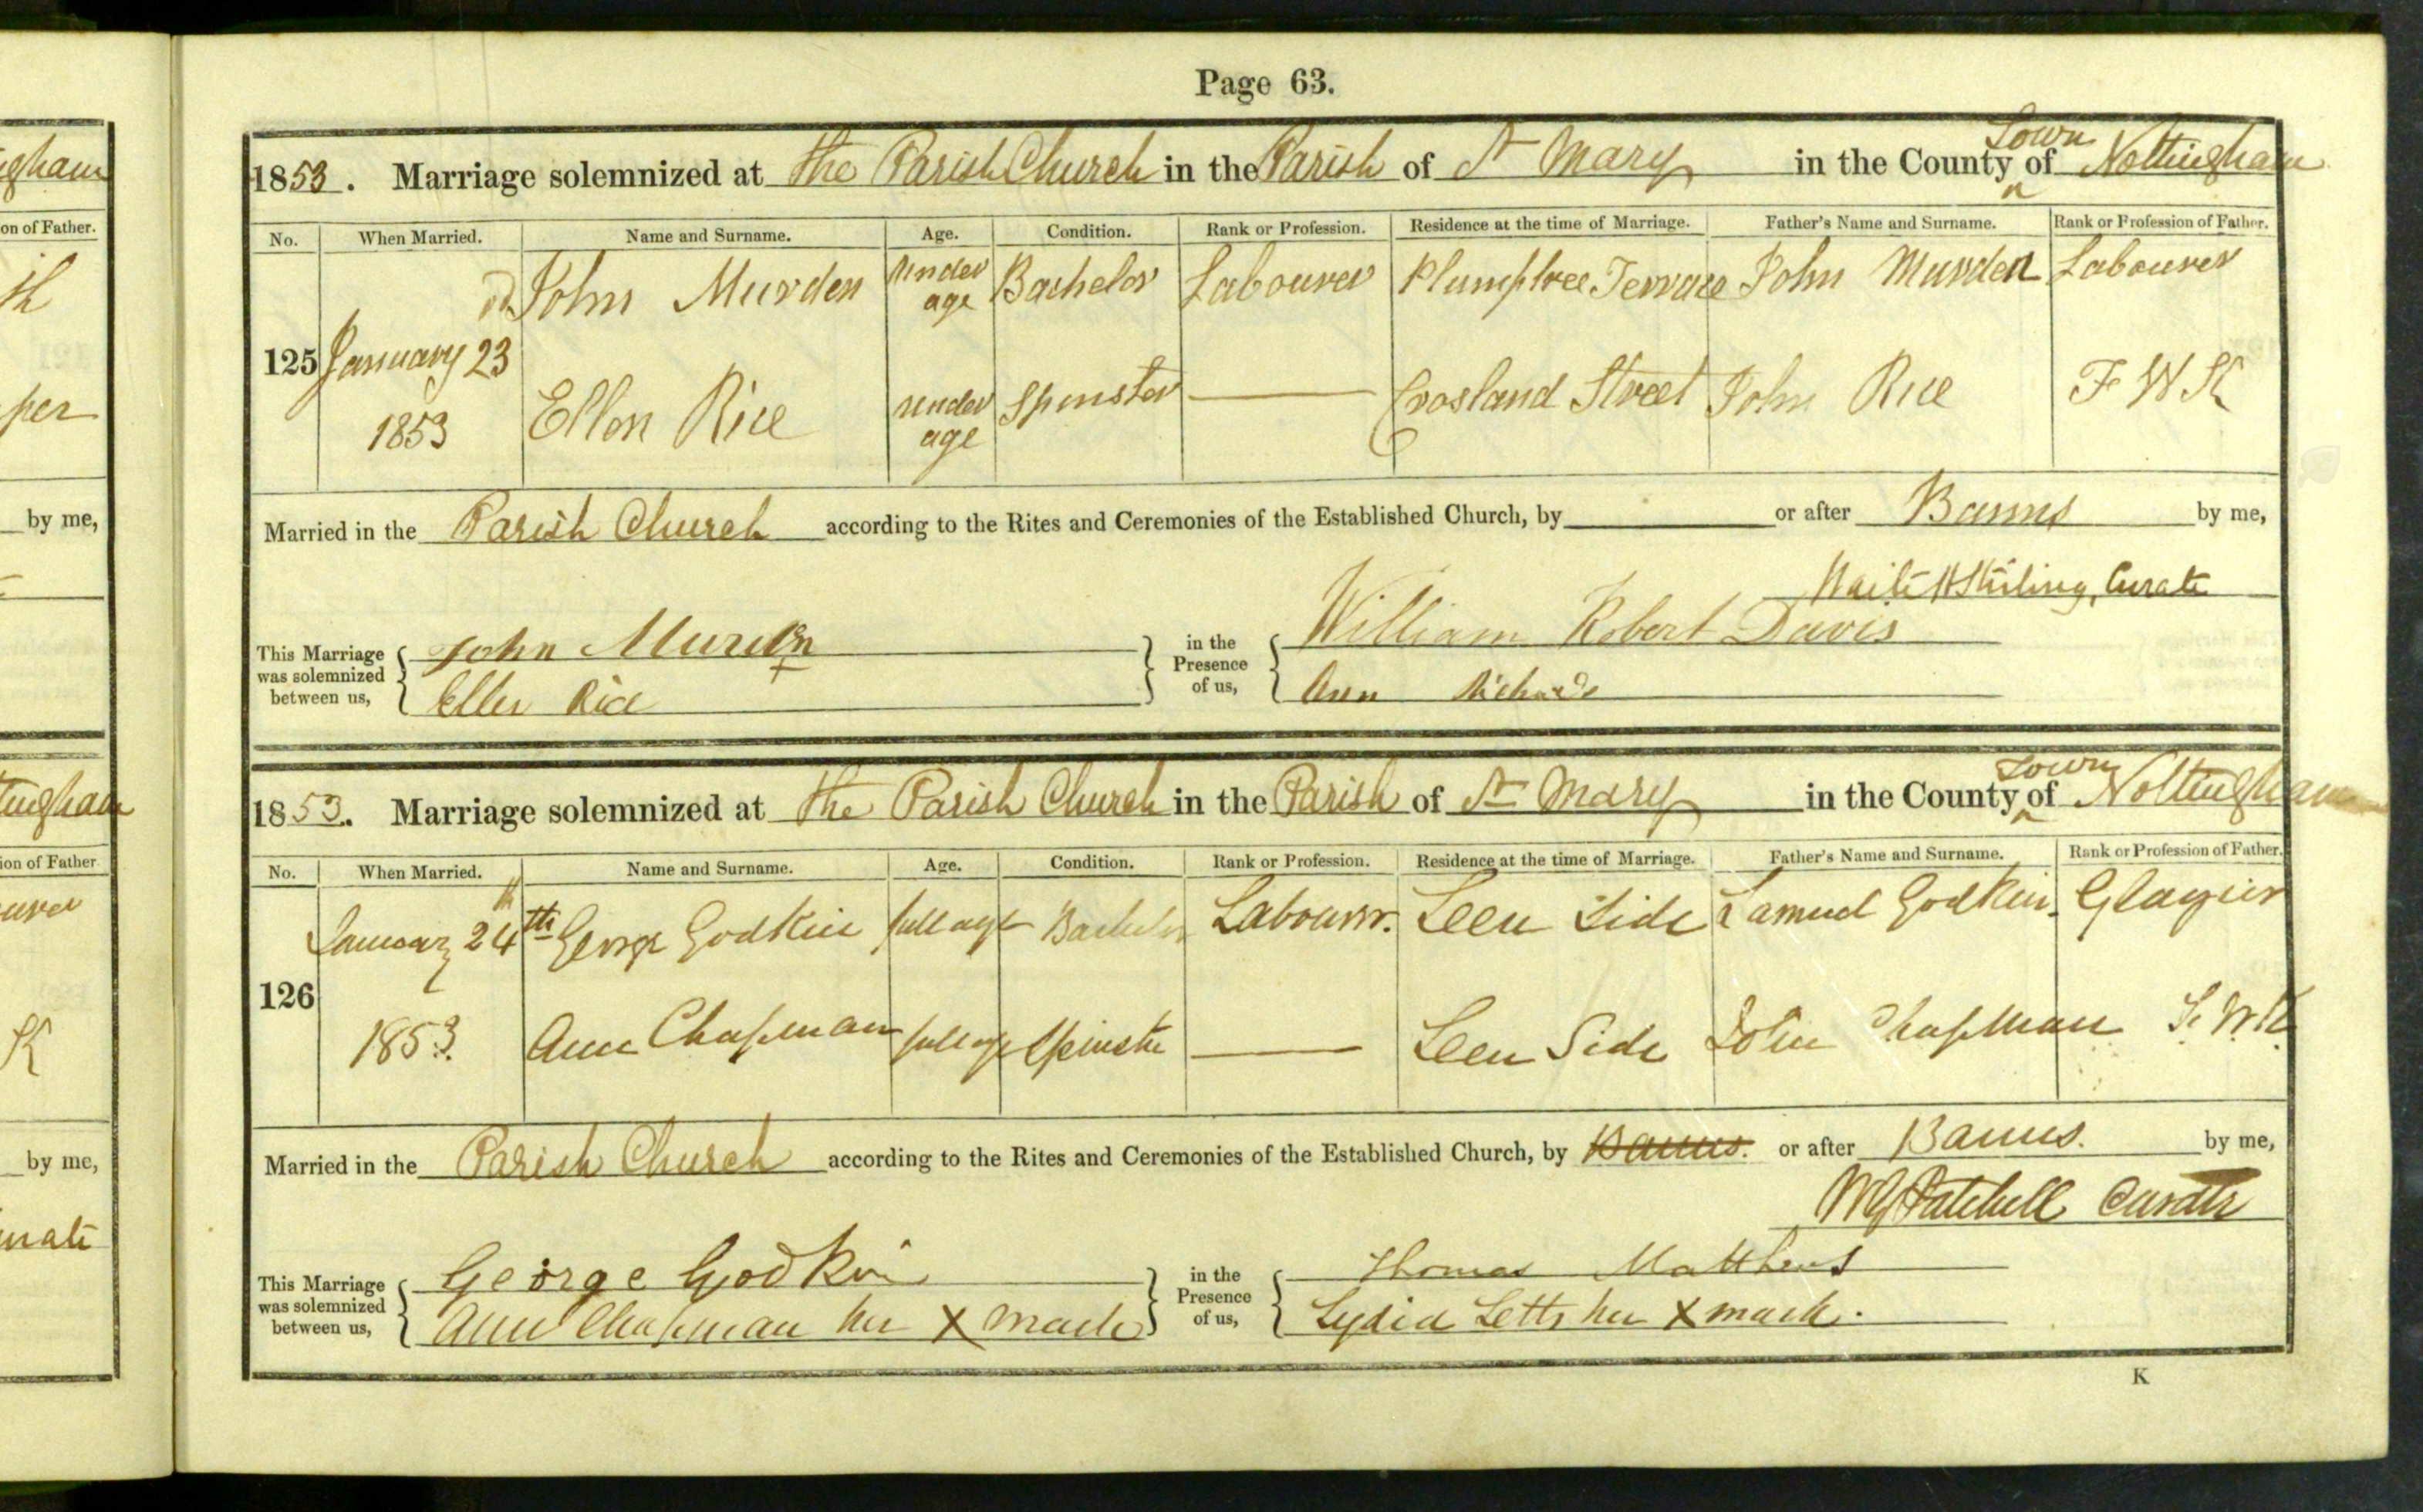 Page 63.
1853. Marriage solemnized at the Parish Church in the Parish of St Mary in the County Town of Nottingham
No. When Married. Name and Surname. Age. Condition. Rank or Profession. Residence at the time of Marriage. Father's Name and Surname. Rank or Profession of Father.
John Murden under age Bachelor Labourer Plumptree Terrace John Murden Labourer
125 January 23rd 1853
Ellen Rice under age Spinster — Crosland Street John Rice F W K
Married in the Parish Church according to the Rites and Ceremonies of the Established Church, by or after Banns by me,
Waite H Stirling, Curate
This Marriage was solemnized between us, John Murden in the Presence of us, William Robert Davis
Ellen Rice Ann Richards
1853. Marriage solemnized at the Parish Church in the Parish of St Mary in the County Town of Nottingham
No. When Married. Name and Surname. Age. Condition. Rank or Profession. Residence at the time of Marriage. Father's Name and Surname. Rank or Profession of Father.
January 24th George Godkin full age Bachelor Labourer. Leen Side Samuel Godkin. Glazier
126
1853. Ann Chapman full age Spinster — Leen Side John Chapman F. W. K.
Married in the Parish Church according to the Rites and Ceremonies of the Established Church, by Banns. or after Banns. by me,
Curate
This Marriage was solemnized between us, George Godkin in the Presence of us, Thomas Matthews
Ann Chapman her X mark Lydia Letts her X mark.
K